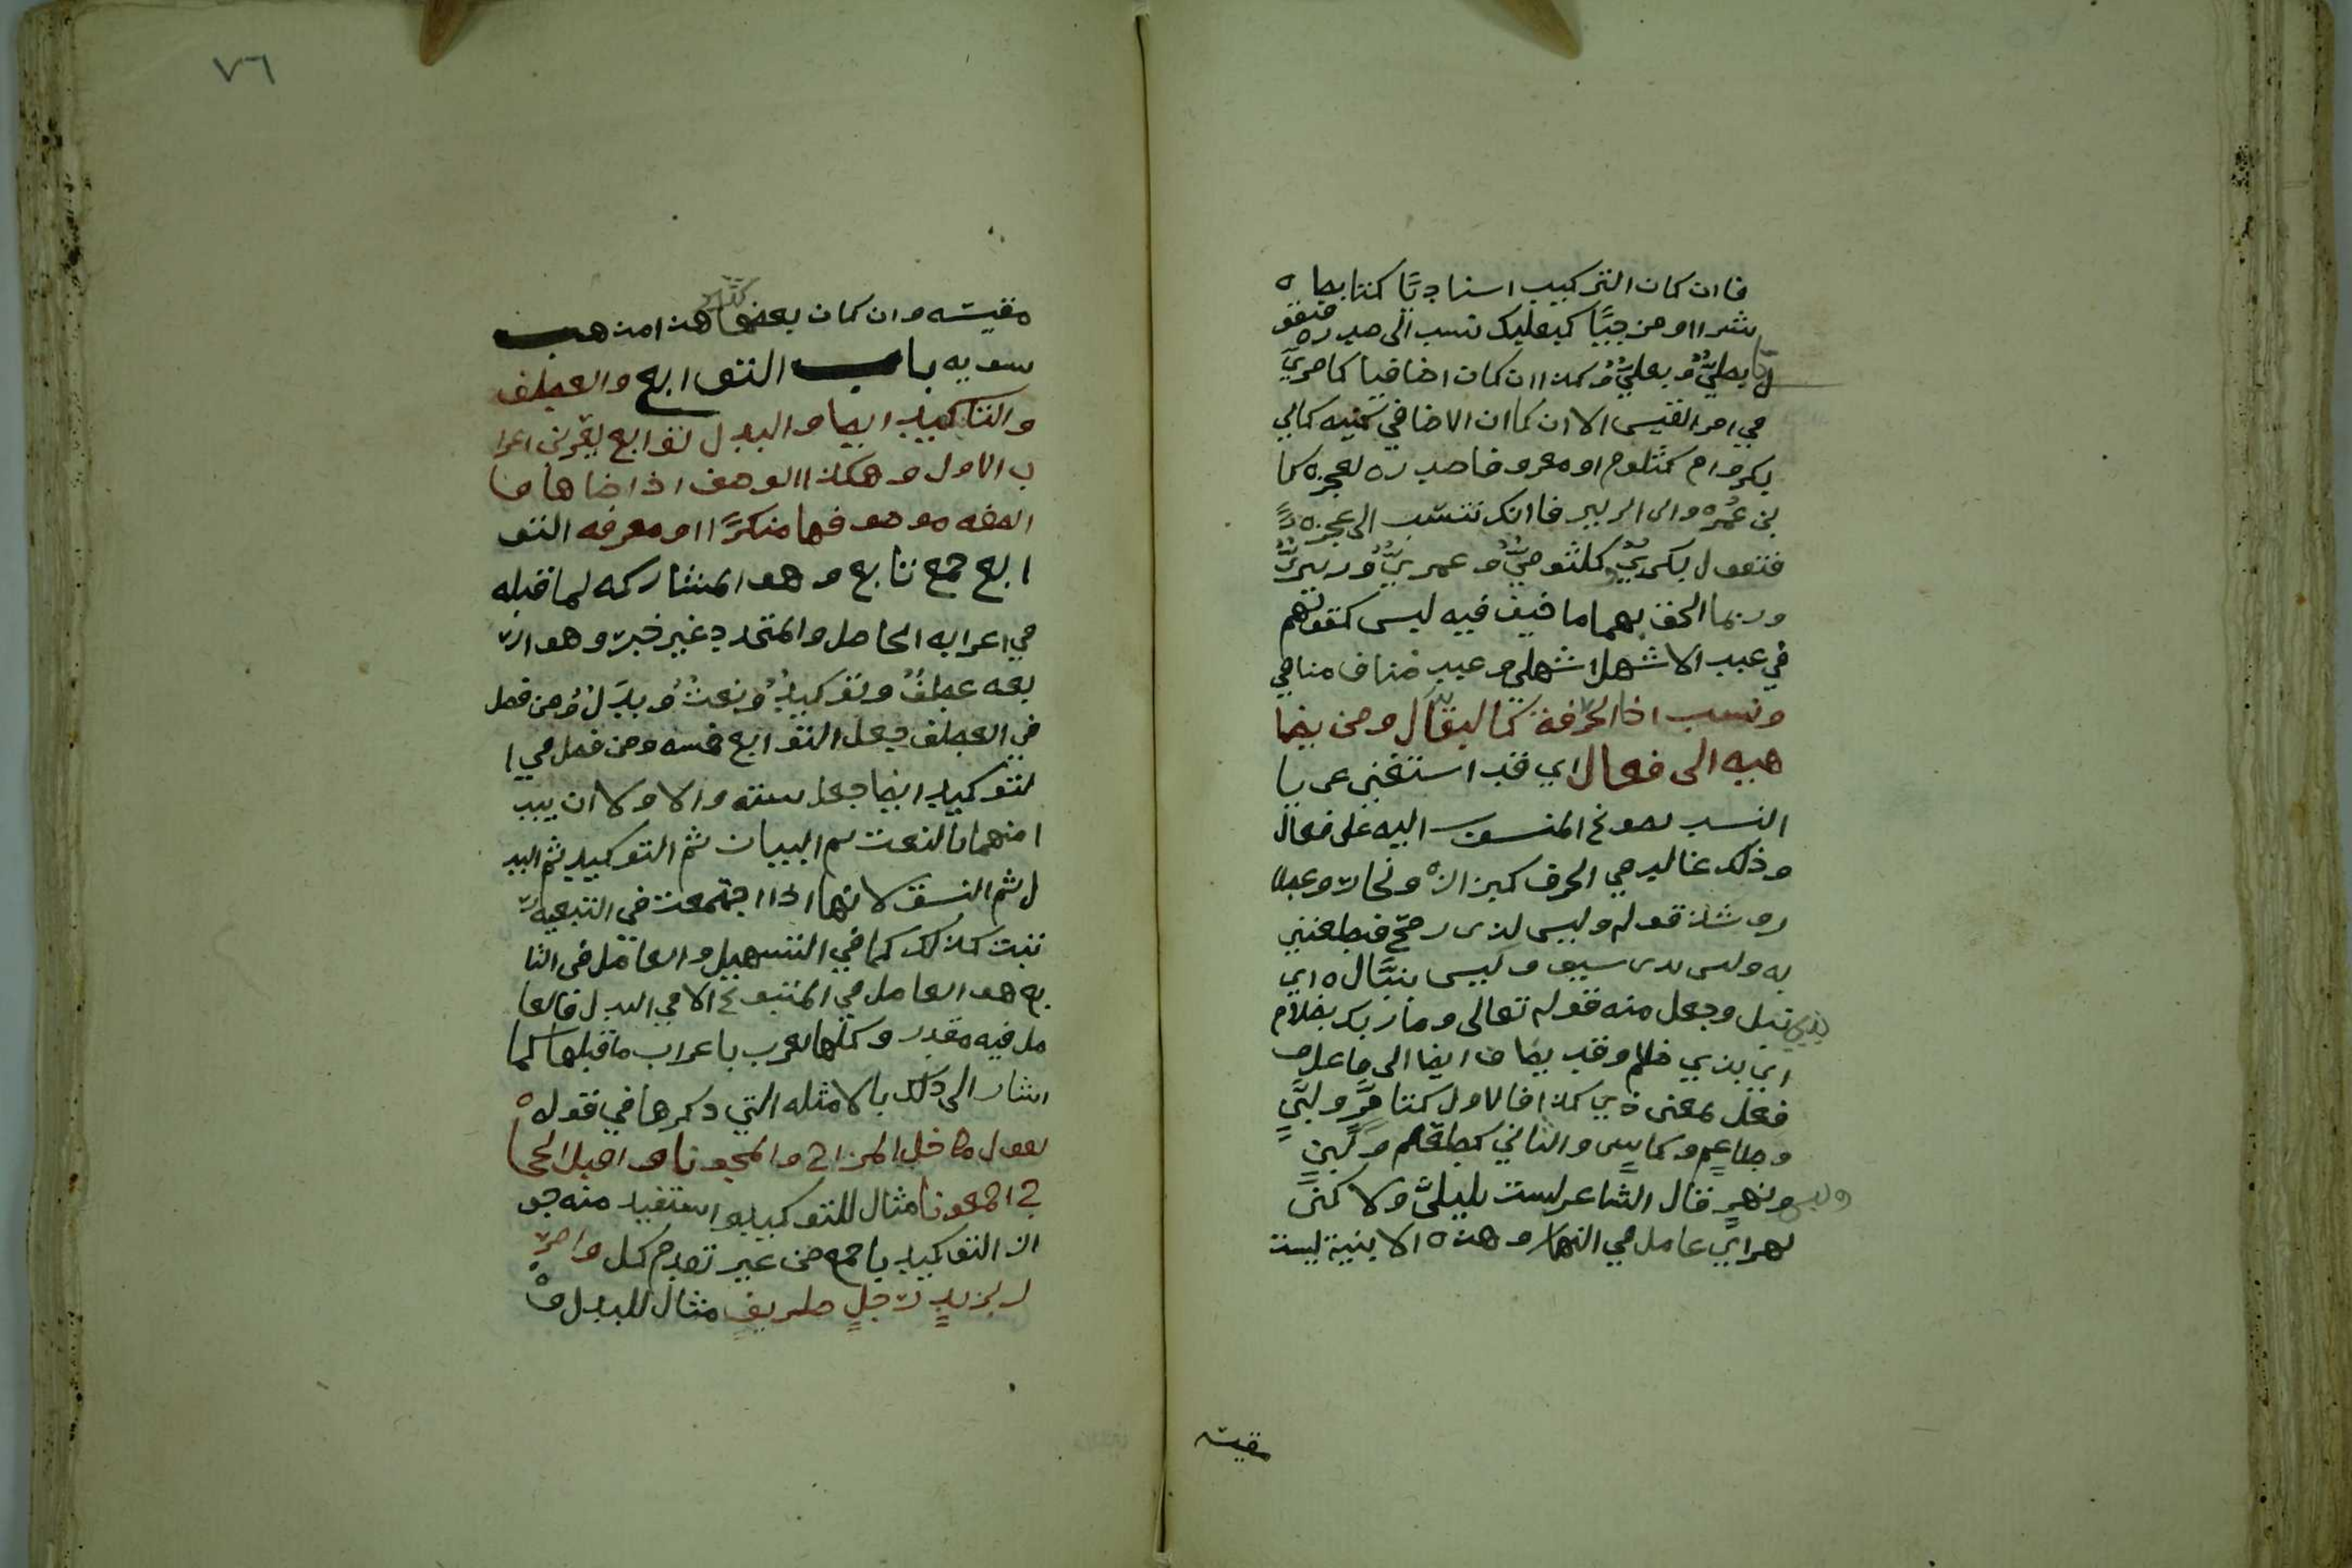 فاان كان التركيب اسناديًا كتابطاه
شرااو مزجيًا كبعلبك تنسب الى صدره فتقو
ل تابطيٌّ وبعليٌّ وكذاان كان اضافيا كامريّ
في امر القيس الا ان كاان الاضافي كنيه كابي
بكر وام كلثوم او معروفا صدره لعجزه كا
بن عُمر وابن الزبير فاانك تنسب الى عجزه
فتقول بكريٌّ وكلثوميٌّ وعمريٌّ وزبيريٌّ
وربما الحق بهما ما خيف فيه لبس كقولهم
في عبد الاشهل اشهلي وعبد مناف منافي
وانسب اخا الحرفة كالبقال ومن يضا
هيه الى فعال اي قد استغني عن يا
النسب بصوغ المنسوب اليه على فعال
وذلك غالب في الحرف كبزاز ونجار وعطا
ر وشذ قوله وليس لذى رمح فيطعنني
به وليس بذى سيف وليس بنبَّال ه اي
بذي نبل وجعل منه قوله تعالى وما ربك بظلام
اي بذي ظلم وقد يضاف ايضا الى فاعل و
فعل بمعنى ذي كذا فالاول كتامرٍ ولابنٍ
وطاعم وكاسٍ والثاني كطعم ولبنٍ
ونهرٍ قال الشاعر لست بليليٍّ ولاكني
نهر اي عامل في النهار وهذه الابنية ليست
مقيسه
٧٦
مقيسه وان كان بعضها كثير هذا مذهب
سيبويه باب التوابع والعطف
والتاكيد ايضا والبدل توابع يقربن اعرا
ب الاول وهكذا الوصف اذا ضاها
الصفه موصوفها منكرًا او معرفه التو
ابع جمع تابع وهو المشارك لما قبله
في اعرابه الحاصل والمتجدد غير خبر وهو ار
بعه عطفٌ وتوكيدٌ ونعتٌ وبدلٌ ومن فصل
في العطف جعل التوابع خمسه ومن فصل في ا
لتوكيد ايضا جعل سته والاولا ان يبد
امنهما بالنعت ثم البيان ثم التوكيد ثم البد
ل ثم النسق لانها اذا اجتمعت في التبعيه
تبت كذلك كما في التسهيل والعامل في التا
بع هو العامل في المتبوع الا في البدل فالعا
مل فيه مقدر وكلها تعرب باعراب ما قبلها كما
اشار الى ذلك بالامثله التي ذكرها في قوله ه
تقول خل المزاح والمجونا واقبل الحجا
ج اجمعونا مثال للتوكيد واستفيد منه جو
از التوكيد باجمع من غير تقدم كل وامر
ر بزيدٍ رجلٍ ظريفٍ مثال للبدل و